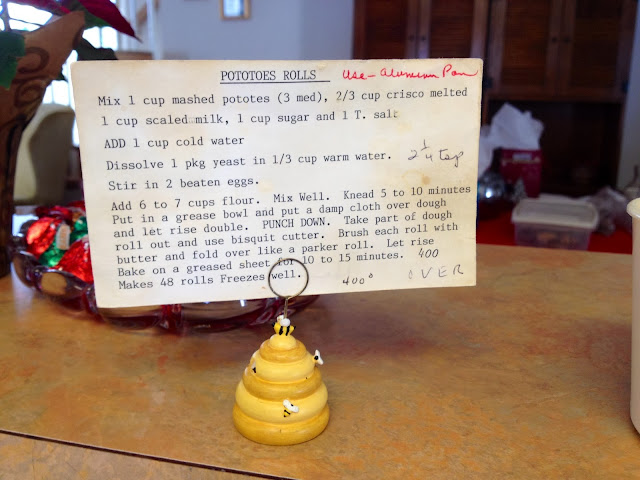 POTOTOES ROLLS Use - Aluminum Pan
Mix 1 cup mashed pototes (3 med), 2/3 cup crisco melted
1 cup scaled milk, 1 cup sugar and 1 T. salt
ADD 1 cup cold water
Dissolve 1 pkg yeast in 1/3 cup warm water. 2 1/4 tsp
Stir in 2 beaten eggs.
Add 6 to 7 cups flour. Mix Well. Knead 5 to 10 minutes
Put in a grease bowl and put a damp cloth over dough
and let rise double. PUNCH DOWN. Take part of dough
roll out and use bisquit cutter. Brush each roll with
butter and fold over like a parker roll. Let rise
Bake on a greased sheet for 10 to 15 minutes. 400
Makes 48 rolls Freezes well. 400° OVER